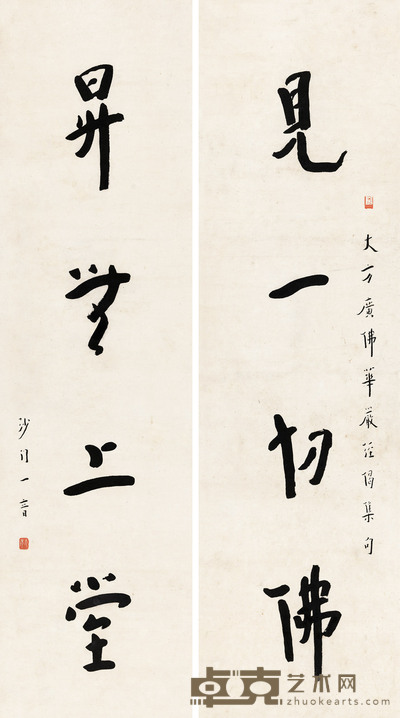 見一切佛
大方廣佛華嚴經偈集句
昇無上堂
沙門一音
卓克艺术网
www.zhuokearts.com